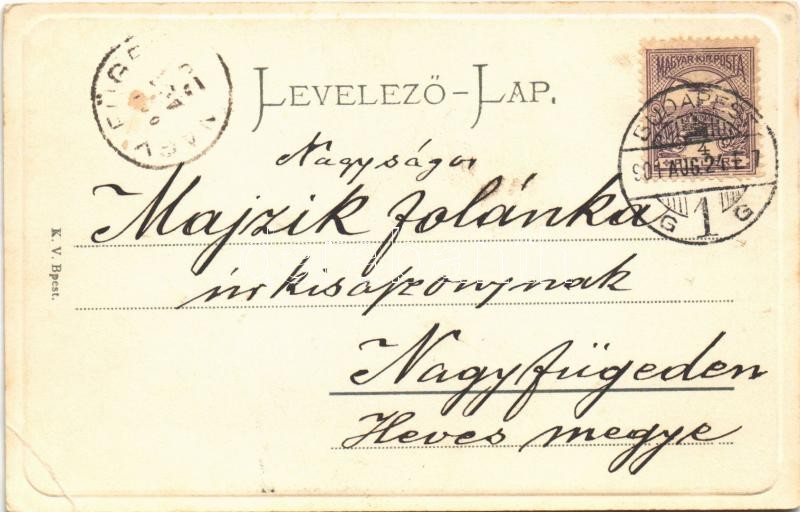 LEVELEZŐ-LAP.
MAGYAR KIR. POSTA
BUDAPEST
4
901 AUG. 24 E. 7
G 1 G
Nagyságos
Majzik Jolánka
úrkisaszonynak
Nagyfügeden
Heves megye
K. V. Bpest.